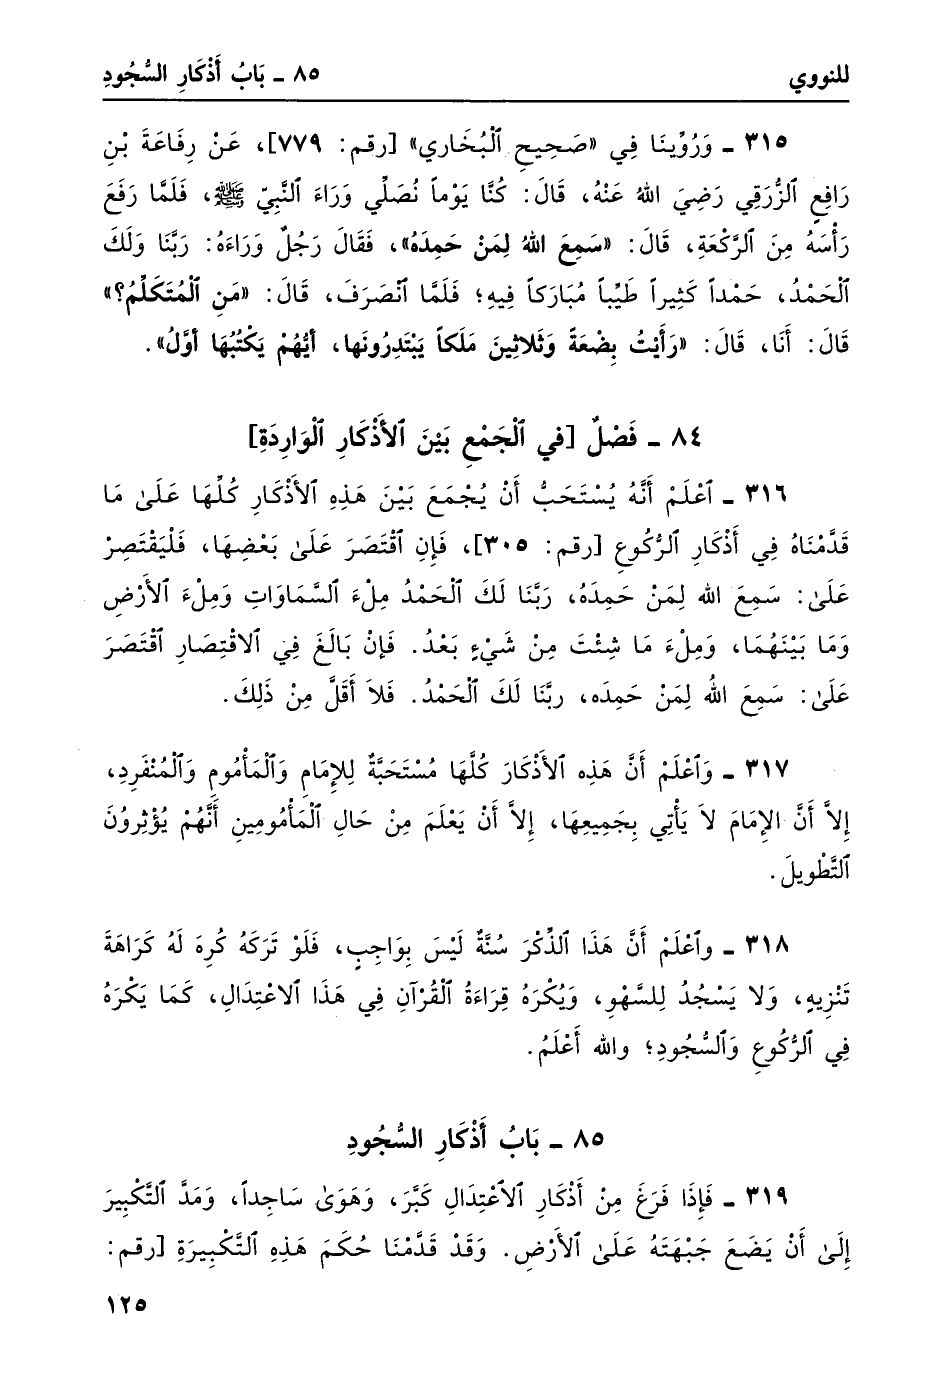 للنووي
٨٥ ـ بَابُ أَذْكَارِ السُّجُودِ
٣١٥ ـ وَرُوِّينَا فِي «صَحِيحِ ٱلْبُخَاري» [رقم: ٧٧٩]، عَنْ رِفَاعَةَ بْنِ
رَافِعٍ ٱلزُّرَقِي رَضِيَ اللهُ عَنْهُ، قَالَ: كُنَّا يَوْماً نُصَلِّي وَرَاءَ النَّبِيِّ ﷺ، فَلَمَّا رَفَعَ
رَأْسَهُ مِنَ ٱلرَّكْعَةِ، قَالَ: «سَمِعَ اللهُ لِمَنْ حَمِدَهُ»، فَقَالَ رَجُلٌ وَرَاءَهُ: رَبَّنَا وَلَكَ
ٱلْحَمْدُ، حَمْداً كَثِيراً طَيِّباً مُبَارَكاً فِيهِ؛ فَلَمَّا ٱنْصَرَفَ، قَالَ: «مَنِ ٱلْمُتَكَلِّمُ؟»
قَالَ: أَنَا، قَالَ: «رَأَيْتُ بِضْعَةً وَثَلاثِينَ مَلَكاً يَبْتَدِرُونَها، أيُّهُمْ يَكْتُبُهَا أوَّلُ».
٨٤ ـ فَصْلٌ [في ٱلْجَمْعِ بَيْنَ ٱلأَذْكَارِ ٱلْوَارِدَةِ]
٣١٦ ـ ٱعْلَمْ أَنَّهُ يُسْتَحَبُّ أَنْ يُجْمَعَ بَيْنَ هَذِهِ ٱلأَذْكَارِ كُلِّهَا عَلَىٰ مَا
قَدَّمْنَاهُ فِي أَذْكَارِ ٱلرُّكُوعِ [رقم: ٣٠٥]، فَإِنِ ٱقْتَصَرَ عَلَىٰ بَعْضِهَا، فَلْيَقْتَصِرْ
عَلَىٰ: سَمِعَ الله لِمَنْ حَمِدَهُ، رَبَّنَا لَكَ ٱلْحَمْدُ مِلْءَ ٱلسَّمَاوَاتِ وَمِلْءَ ٱلأَرْضِ
وَمَا بَيْنَهُمَا، وَمِلْءَ مَا شِئْتَ مِنْ شَيْءٍ بَعْدُ. فَإنْ بَالَغَ فِي ٱلاقْتِصَارِ ٱقْتَصَرَ
عَلَىٰ: سَمِعَ اللهُ لِمَنْ حَمِدَه، ربَّنَا لَكَ ٱلْحَمْدُ. فَلاَ أَقَلَّ مِنْ ذَلِكَ.
٣١٧ ـ وَٱعْلَمْ أَنَّ هَذِه ٱلأَذْكَارَ كُلَّهَا مُسْتَحَبَّةٌ لِلإِمَامِ وَٱلْمَأْمُومِ وَٱلْمُنْفَرِدِ،
إِلاَّ أَنَّ الإِمَامَ لاَ يَأْتِي بِجَمِيعِهَا، إِلاَّ أَنْ يَعْلَمَ مِنْ حَالِ ٱلْمَأْمُومِينِ أَنَّهُمْ يُؤْثِرُونَ
ٱلتَّطْوِيلَ.
٣١٨ ـ وٱعْلَمْ أَنَّ هَذَا ٱلذِّكْرَ سُنَّةٌ لَيْسَ بِوَاجِبٍ، فَلَوْ تَرَكَهُ كُرِهَ لَهُ كَرَاهَةَ
تَنْزِيهٍ، وَلا يَسْجُدُ لِلسَّهْوِ، وَيُكْرَهُ قِرَاءَةُ ٱلْقُرْآنِ فِي هَذَا ٱلاعْتِدَالِ، كَمَا يَكْرَهُ
فِي ٱلرُّكُوعِ وَٱلسُّجُودِ؛ والله أَعْلَمُ.
٨٥ ـ بَابُ أَذْكَارِ السُّجُودِ
٣١٩ ـ فَإِذَا فَرَغَ مِنْ أَذْكَارِ ٱلاعْتِدَالِ كَبَّرَ، وَهَوَىٰ سَاجِداً، وَمَدَّ ٱلتَّكْبِيرَ
إِلَىٰ أَنْ يَضَعَ جَبْهَتَهُ عَلَىٰ ٱلأَرْضِ. وَقَدْ قَدَّمْنَا حُكمَ هَذِهِ ٱلتَّكْبِيرَةِ [رقم:
١٢٥